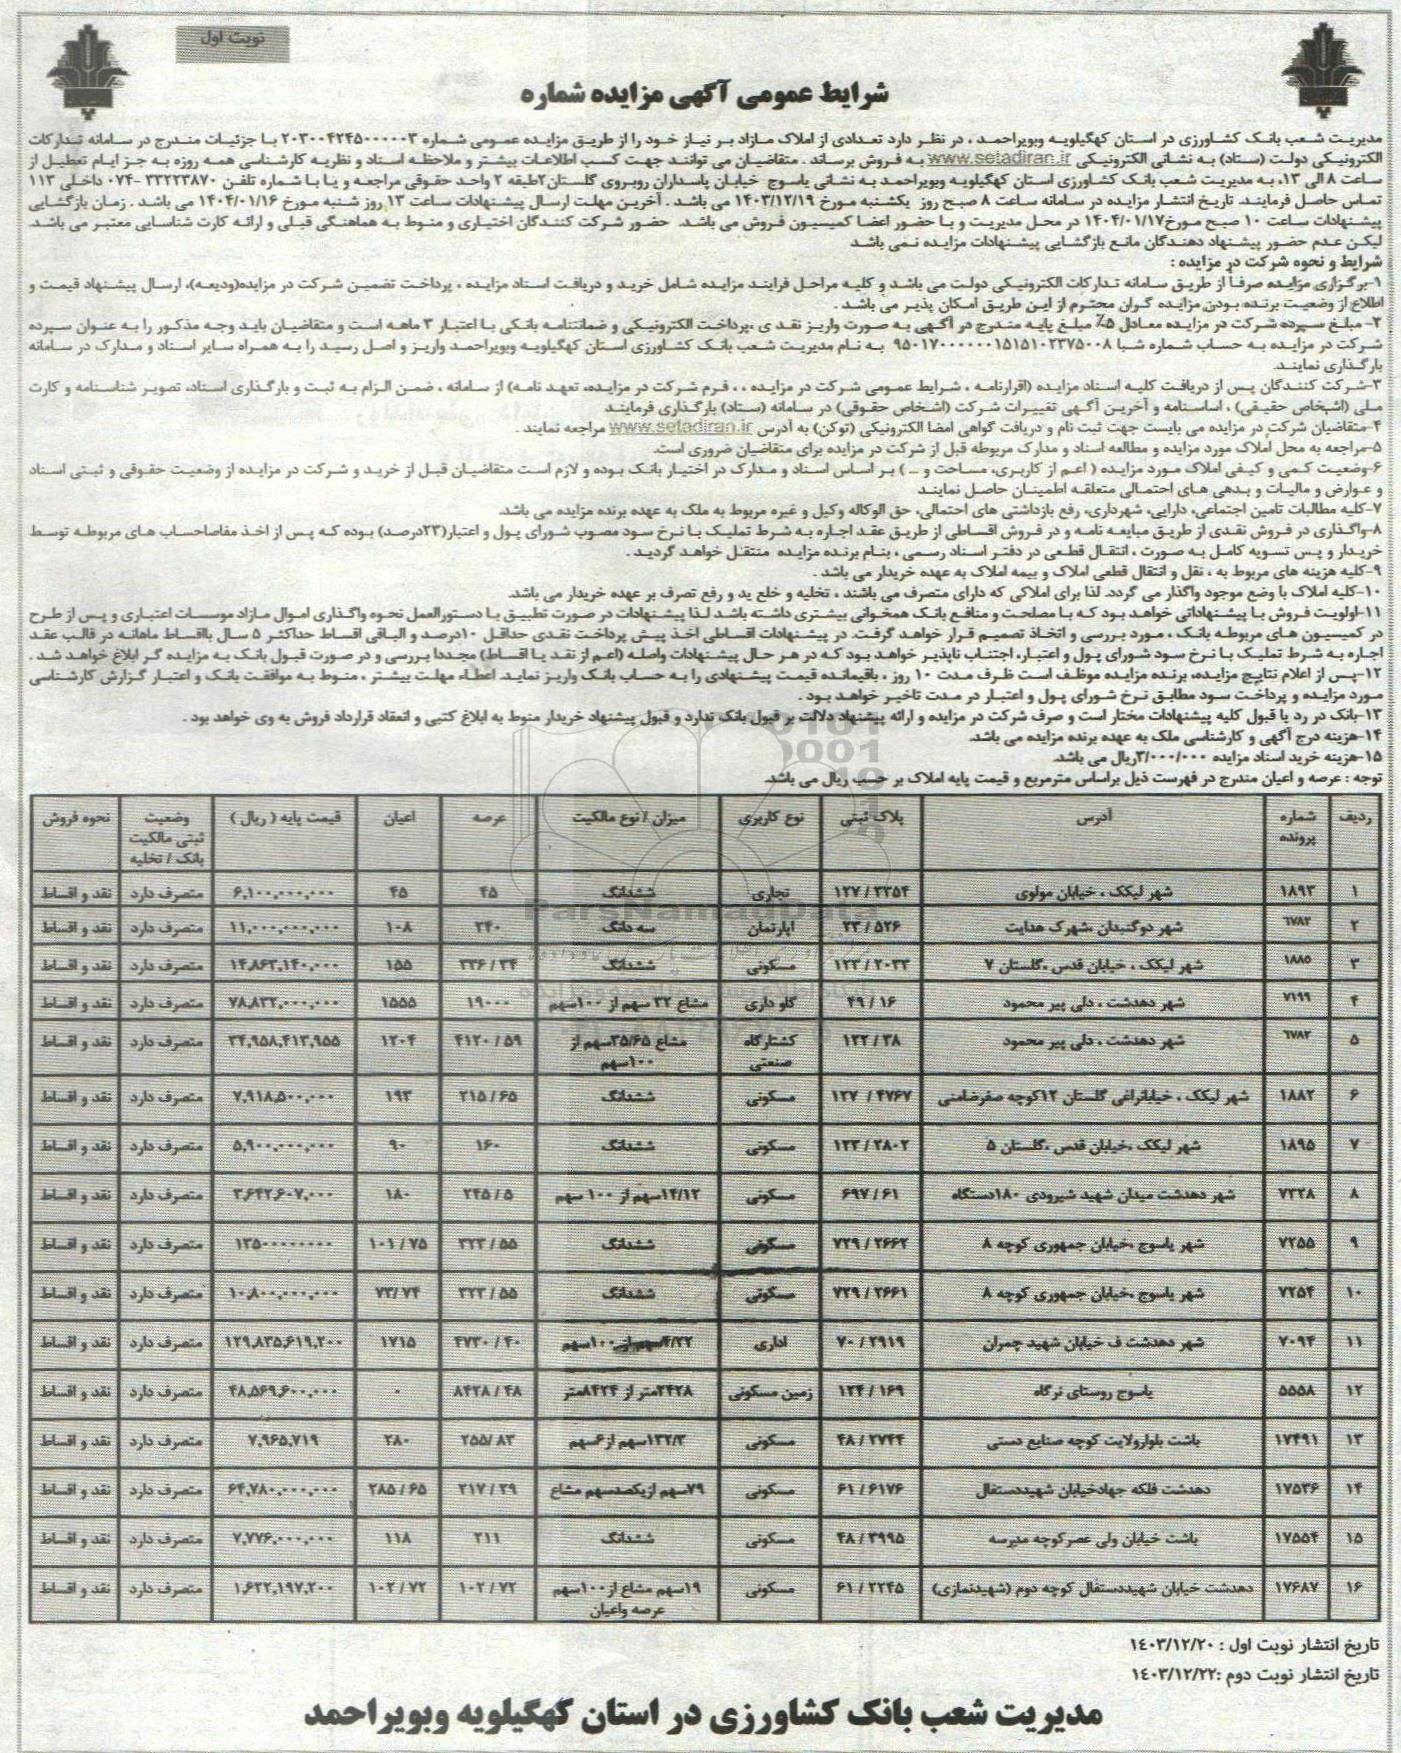 نوبت اول
شرایط عمومی آگهی مزایده شماره
مدیریت شعب بانک کشاورزی در استان کهگیلویه وبویراحمد ، در نظر دارد تعدادی از املاک مازاد بر نیاز خود را از طریق مزایده عمومی شماره ۲۰۳۰۰۴۲۴۵۰۰۰۰۰۳ با جزئیات مندرج در سامانه تدارکات
الکترونیکی دولت (ستاد) به نشانی الکترونیکی www.setadiran.ir به فروش برساند . متقاضیان می توانند جهت کسب اطلاعات بیشتر و ملاحظه اسناد و نظریه کارشناسی همه روزه به جز ایام تعطیل از
ساعت ۸ الی ۱۳، به مدیریت شعب بانک کشاورزی استان کهگیلویه وبویراحمد به نشانی یاسوج خیابان پاسداران روبروی گلستان۲طبقه ۲ واحد حقوقی مراجعه و یا با شماره تلفن ۳۳۲۲۳۸۷۰ -۰۷۴ داخلی ۱۱۳
تماس حاصل فرمایند. تاریخ انتشار مزایده در سامانه ساعت ۸ صبح روز یکشنبه مورخ ۱۴۰۳/۱۲/۱۹ می باشد . آخرین مهلت ارسال پیشنهادات ساعت ۱۳ روز شنبه مورخ ۱۴۰۴/۰۱/۱۶ می باشد . زمان بازگشایی
پیشنهادات ساعت ۱۰ صبح مورخ۱۴۰۴/۰۱/۱۷ در محل مدیریت و با حضور اعضا کمیسیون فروش می باشد. حضور شرکت کنندگان اختیاری و منوط به هماهنگی قبلی و ارائه کارت شناسایی معتبر می باشد.
لیکن عدم حضور پیشنهاد دهندگان مانع بازگشایی پیشنهادات مزایده نمی باشد
شرایط و نحوه شرکت در مزایده :
۱-برگزاری مزایده صرفاً از طریق سامانه تدارکات الکترونیکی دولت می باشد و کلیه مراحل فرایند مزایده شامل خرید و دریافت اسناد مزایده ، پرداخت تضمین شرکت در مزایده(ودیعه)، ارسال پیشنهاد قیمت و
اطلاع از وضعیت برنده بودن مزایده گران محترم از این طریق امکان پذیر می باشد .
۲- مبلغ سپرده شرکت در مزایده معادل ۵٪ مبلغ پایه مندرج در آگهی به صورت واریز نقد ی ،پرداخت الکترونیکی و ضمانتنامه بانکی با اعتبار ۳ ماهه است و متقاضیان باید وجه مذکور را به عنوان سپرده
شرکت در مزایده به حساب شماره شبا ۹۵۰۱۷۰۰۰۰۰۰۱۵۱۵۱۰۲۳۷۵۰۰۸ به نام مدیریت شعب بانک کشاورزی استان کهگیلویه وبویراحمد واریز و اصل رسید را به همراه سایر اسناد و مدارک در سامانه
بارگذاری نمایند.
۳-شرکت کنندگان پس از دریافت کلیه اسناد مزایده (اقرارنامه ، شرایط عمومی شرکت در مزایده ، ، فرم شرکت در مزایده، تعهد نامه) از سامانه ، ضمن الزام به ثبت و بارگذاری اسناد، تصویر شناسنامه و کارت
ملی (اشخاص حقیقی) ، اساسنامه و آخرین آگهی تغییرات شرکت (اشخاص حقوقی) در سامانه (ستاد) بارگذاری فرمایند
۴-متقاضیان شرکت در مزایده می بایست جهت ثبت نام و دریافت گواهی امضا الکترونیکی (توکن) به آدرس www.setadiran.ir مراجعه نمایند .
۵-مراجعه به محل املاک مورد مزایده و مطالعه اسناد و مدارک مربوطه قبل از شرکت در مزایده برای متقاضیان ضروری است.
۶-وضعیت کمی و کیفی املاک مورد مزایده ( اعم از کاربری، مساحت و ... ) بر اساس اسناد و مدارک در اختیار بانک بوده و لازم است متقاضیان قبل از خرید و شرکت در مزایده از وضعیت حقوقی و ثبتی اسناد
و عوارض و مالیات و بدهی های احتمالی متعلقه اطمینان حاصل نمایند
۷-کلیه مطالبات تامین اجتماعی، دارایی، شهرداری، رفع بازداشتی های احتمالی، حق الوکاله وکیل و غیره مربوط به ملک به عهده برنده مزایده می باشد.
۸-واگذاری در فروش نقدی از طریق مبایعه نامه و در فروش اقساطی از طریق عقد اجاره به شرط تملیک با نرخ سود مصوب شورای پول و اعتبار(۲۳درصد) بوده که پس از اخذ مفاصاحساب های مربوطه توسط
خریدار و پس تسویه کامل به صورت ، انتقال قطعی در دفتر اسناد رسمی ، بنام برنده مزایده منتقل خواهد گردید .
۹-کلیه هزینه های مربوط به ، نقل و انتقال قطعی املاک و بیمه املاک به عهده خریدار می باشد .
۱۰-کلیه املاک با وضع موجود واگذار می گردد. لذا برای املاکی که دارای متصرف می باشند ، تخلیه و خلع ید و رفع تصرف بر عهده خریدار می باشد.
۱۱-اولویت فروش با پیشنهاداتی خواهد بود که با مصلحت و منافع بانک همخوانی بیشتری داشته باشد لذا پیشنهادات در صورت تطبیق با دستورالعمل نحوه واگذاری اموال مازاد موسسات اعتباری و پس از طرح
در کمیسیون های مربوطه بانک ، مورد بررسی و اتخاذ تصمیم قرار خواهد گرفت. در پیشنهادات اقساطی اخذ پیش پرداخت نقدی حداقل ۱۰درصد و الباقی اقساط حداکثر ۵ سال بااقساط ماهانه در قالب عقد
اجاره به شرط تملیک با نرخ سود شورای پول و اعتبار، اجتناب ناپذیر خواهد بود که در هر حال پیشنهادات واصله (اعم از نقد یا اقساط) مجددا بررسی و در صورت قبول بانک به مزایده گر ابلاغ خواهد شد .
۱۲-پس از اعلام نتایج مزایده، برنده مزایده موظف است ظرف مدت ۱۰ روز ، باقیمانده قیمت پیشنهادی را به حساب بانک واریز نماید. اعطاء مهلت بیشتر ، منوط به موافقت بانک و اعتبار گزارش کارشناسی
مورد مزایده و پرداخت سود مطابق نرخ شورای پول و اعتبار در مدت تاخیر خواهد بود .
۱۳-بانک در رد یا قبول کلیه پیشنهادات مختار است و صرف شرکت در مزایده و ارائه پیشنهاد دلالت بر قبول بانک ندارد و قبول پیشنهاد خریدار منوط به ابلاغ کتبی و انعقاد قرارداد فروش به وی خواهد بود .
۱۴-هزینه درج آگهی و کارشناسی ملک به عهده برنده مزایده می باشد.
۱۵-هزینه خرید اسناد مزایده ۳/۰۰۰/۰۰۰ریال می باشد.
توجه : عرصه و اعیان مندرج در فهرست ذیل براساس مترمربع و قیمت پایه املاک بر حسب ریال می باشد.
ردیف | شماره پرونده | آدرس | پلاک ثبتی | نوع کاربری | میزان / نوع مالکیت | عرصه | اعیان | قیمت پایه ( ریال ) | وضعیت ثبتی مالکیت بانک / تخلیه | نحوه فروش
۱ | ۱۸۹۳ | شهر لیکک ، خیابان مولوی | ۱۲۷ / ۳۳۵۴ | تجاری | ششدانگ | ۴۵ | ۴۵ | ۶,۱۰۰,۰۰۰,۰۰۰ | متصرف دارد | نقد و اقساط
۲ | ۶۷۸۲ | شهر دوگنبدان ،شهرک هدایت | ۲۳ / ۵۲۶ | اپارتمان | سه دانگ | ۲۴۰ | ۱۰۸ | ۱۱,۰۰۰,۰۰۰,۰۰۰ | متصرف دارد | نقد و اقساط
۳ | ۱۸۸۵ | شهر لیکک ، خیابان قدس ،گلستان ۷ | ۱۲۳ / ۲۰۳۳ | مسکونی | ششدانگ | ۳۳۶ / ۳۴ | ۱۵۵ | ۱۴,۸۶۳,۱۴۰,۰۰۰ | متصرف دارد | نقد و اقساط
۴ | ۷۱۹۹ | شهر دهدشت ، دلی پیر محمود | ۴۹ / ۱۶ | گاو داری | مشاع ۳۲ سهم از ۱۰۰سهم | ۱۹۰۰۰ | ۱۵۵۵ | ۷۸,۸۳۲,۰۰۰,۰۰۰ | متصرف دارد | نقد و اقساط
۵ | ۶۷۸۲ | شهر دهدشت ، دلی پیر محمود | ۱۲۲ / ۳۸ | کشتارگاه صنعتی | مشاع ۳۵/۶۵سهم از ۱۰۰سهم | ۴۱۲۰ / ۵۹ | ۱۲۰۴ | ۳۴,۹۵۸,۴۱۳,۹۵۵ | متصرف دارد | نقد و اقساط
۶ | ۱۸۸۲ | شهر لیکک ، خیابانراعی گلستان ۱۲کوچه صفرضامنی | ۱۲۷ / ۴۷۶۷ | مسکونی | ششدانگ | ۲۱۵ / ۶۵ | ۱۹۳ | ۷,۹۱۸,۵۰۰,۰۰۰ | متصرف دارد | نقد و اقساط
۷ | ۱۸۹۵ | شهر لیکک ،خیابان قدس ،گلستان ۵ | ۱۲۳ / ۲۸۰۲ | مسکونی | ششدانگ | ۱۶۰ | ۹۰ | ۵,۹۰۰,۰۰۰,۰۰۰ | متصرف دارد | نقد و اقساط
۸ | ۷۳۲۸ | شهر دهدشت میدان شهید شیرودی ۱۸۰دستگاه | ۶۹۷ / ۶۱ | مسکونی | ۱۴/۱۲سهم از ۱۰۰ سهم | ۲۴۵ / ۵ | ۱۸۰ | ۳,۶۴۲,۶۰۷,۰۰۰ | متصرف دارد | نقد و اقساط
۹ | ۷۲۵۵ | شهر یاسوج ،خیابان جمهوری کوچه ۸ | ۷۲۹ / ۲۶۶۲ | مسکونی | ششدانگ | ۳۲۳ / ۵۵ | ۱۰۱ / ۷۵ | ۱۳۵۰۰۰۰۰۰۰۰ | متصرف دارد | نقد و اقساط
۱۰ | ۷۲۵۴ | شهر یاسوج ،خیابان جمهوری کوچه ۸ | ۷۲۹ / ۲۶۶۱ | مسکونی | ششدانگ | ۳۲۳ / ۵۵ | ۷۳/ ۷۴ | ۱۰,۸۰۰,۰۰۰,۰۰۰ | متصرف دارد | نقد و اقساط
۱۱ | ۷۰۹۴ | شهر دهدشت ف خیابان شهید چمران | ۷۰ / ۲۹۱۹ | اداری | ۱۰۰سهم | ۴۷۳۰ / ۴۰ | ۱۷۱۵ | ۱۲۹,۸۳۵,۶۱۹,۲۰۰ | متصرف دارد | نقد و اقساط
۱۲ | ۵۵۵۸ | یاسوج روستای نرگاه | ۱۲۴ / ۱۶۹ | زمین مسکونی | ۲۴۲۸متر از ۸۴۲۴متر | ۸۴۲۸ / ۴۸ | ۰ | ۴۸,۵۶۹,۶۰۰,۰۰۰ | متصرف دارد | نقد و اقساط
۱۳ | ۱۷۴۹۱ | باشت بلوارولایت کوچه صنایع دستی | ۴۸ / ۲۷۴۴ | مسکونی | ۱۳۲/۲سهم از۶سهم | ۲۵۵/ ۸۳ | ۲۸۰ | ۷,۹۶۵,۷۱۹ | متصرف دارد | نقد و اقساط
۱۴ | ۱۷۵۳۶ | دهدشت فلکه جهادخیابان شهیددستغال | ۶۱ / ۶۱۷۶ | مسکونی | ۷۹سهم ازیکصدسهم مشاع | ۲۱۷ / ۲۹ | ۲۸۵ / ۶۵ | ۶۴,۷۸۰,۰۰۰,۰۰۰ | متصرف دارد | نقد و اقساط
۱۵ | ۱۷۵۵۴ | باشت خیابان ولی عصرکوچه مدرسه | ۴۸ / ۳۹۹۵ | مسکونی | ششدانگ | ۲۱۱ | ۱۱۸ | ۷,۷۷۶,۰۰۰,۰۰۰ | متصرف دارد | نقد و اقساط
۱۶ | ۱۷۶۸۷ | دهدشت خیابان شهیددستغال کوچه دوم (شهیدنمازی) | ۶۱ / ۲۲۴۵ | مسکونی | ۱۹سهم مشاع از۱۰۰سهم عرصه واعیان | ۱۰۲ / ۷۲ | ۱۰۲ / ۷۲ | ۱,۶۲۲,۱۹۷,۲۰۰ | متصرف دارد | نقد و اقساط
تاریخ انتشار نوبت اول : ۱۴۰۳/۱۲/۲۰
تاریخ انتشار نوبت دوم :۱۴۰۳/۱۲/۲۲
مدیریت شعب بانک کشاورزی در استان کهگیلویه وبویراحمد
ParsNamadData